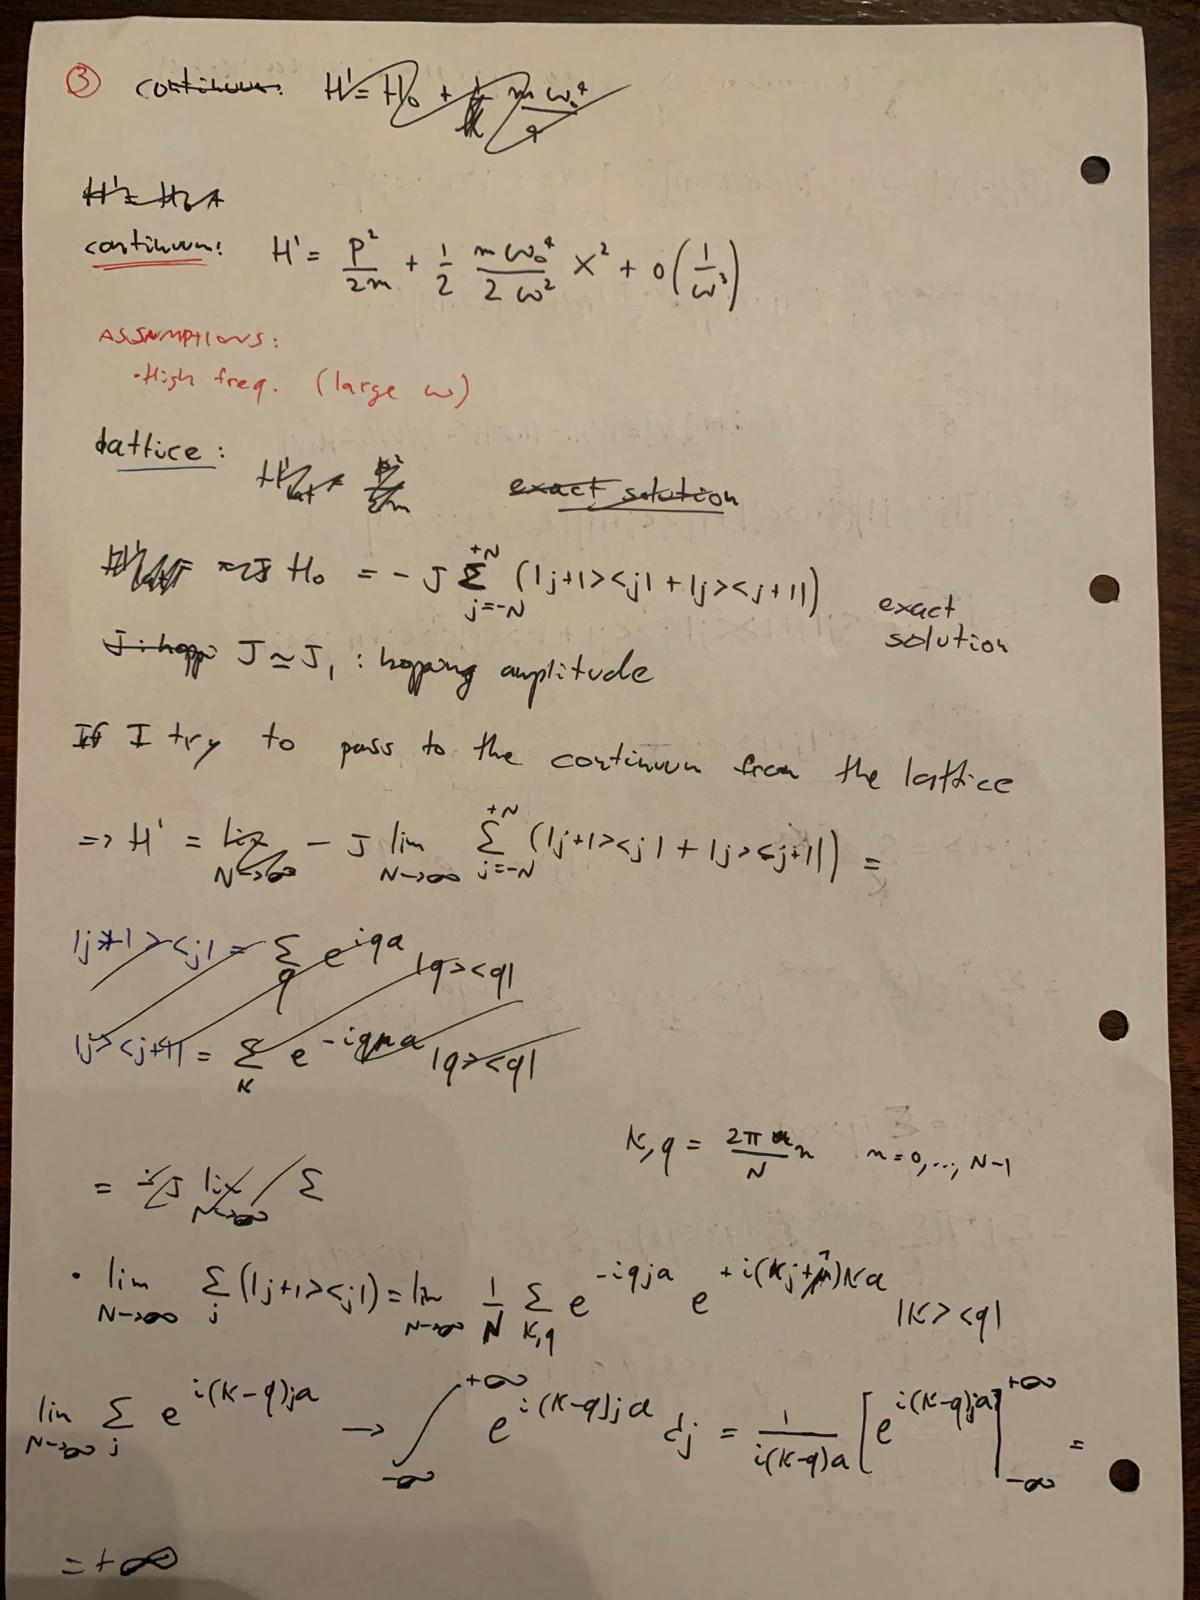 ③ continuum: H' = H₀ + 1/ m ω₀⁴/4
H' = H₀ +
continuum: H' = p²/2m + 1/2 m ω₀⁴/2 ω² x² + o(1/ω³)
ASSUMPTIONS:
· High freq. (large ω)
Lattice: H' = p²/2m exact solution
H₀ = - J Σ_{j=-N}^{+N} (|j+1><j| + |j><j+1|) exact
solution
J: hopp J ≃ J₁ : hopping amplitude
If I try to pass to the continuum from the lattice
=> H' = lim_{N→∞} - J lim_{N→∞} Σ_{j=-N}^{+N} (|j+1><j| + |j><j+1|) =
|j+1><j| = Σ_q e^{iqa} |q><q|
|j><j+1| = Σ_k e^{-iqa} |q><q|
k,q = 2π n/N n=0,..., N-1
= -J lim_{N→∞} Σ
· lim_{N→∞} Σ_j (|j+1><j|) = lim_{N→∞} 1/N Σ_{k,q} e^{-iqja} e^{+i(j+1)ka} |k><q|
lim_{N→∞} Σ_j e^{i(k-q)ja} → ∫_{-∞}^{+∞} e^{i(k-q)ja} dj = 1/i(k-q)a [e^{i(k-q)ja}]_{-∞}^{+∞} =
= +∞